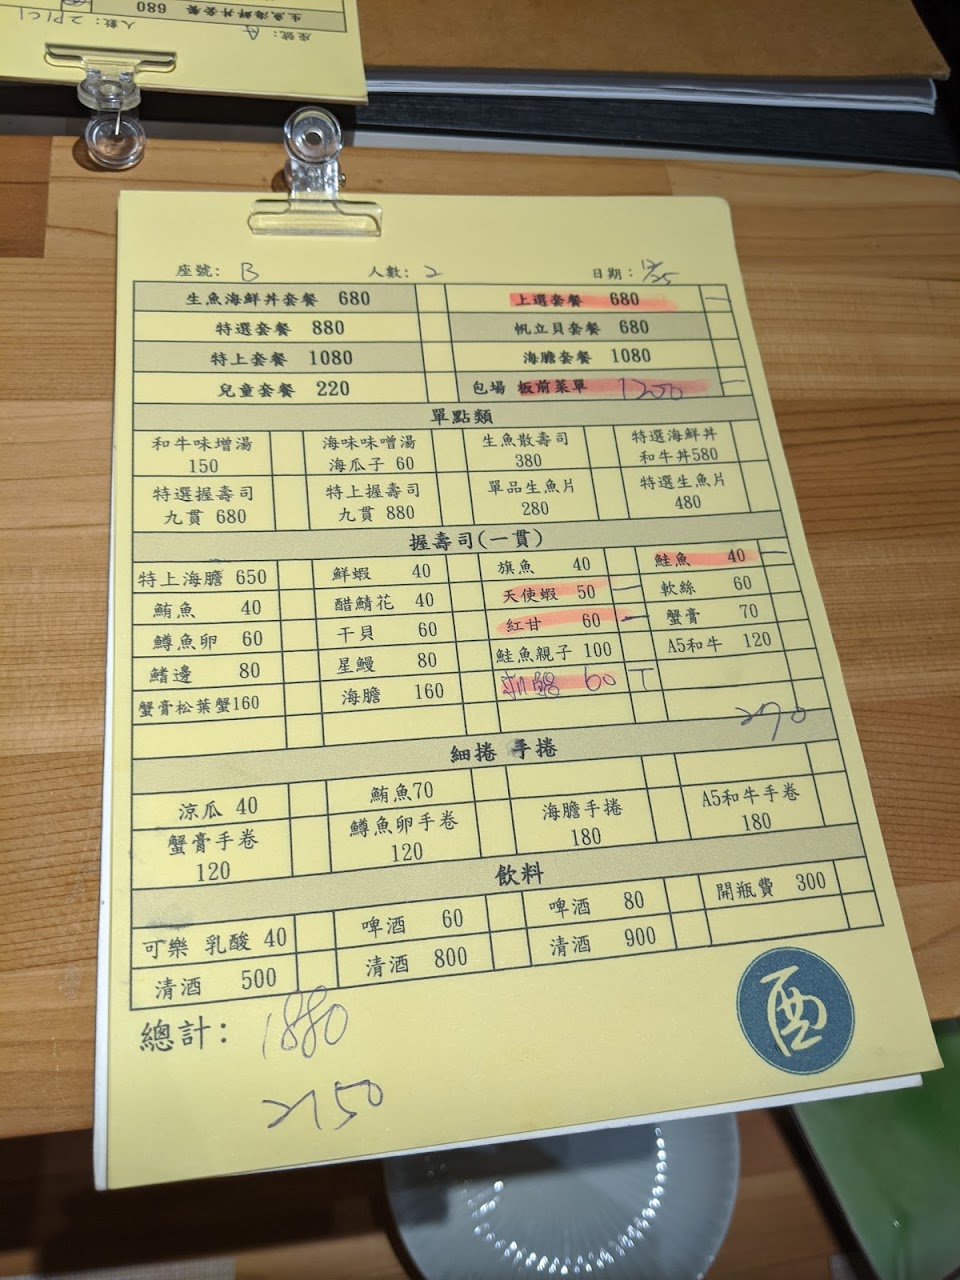 生魚海鮮丼套餐 680
座號: A 人數: 2P1C1
座號: B 人數: 2 日期: 12/25
生魚海鮮丼套餐 680 上選套餐 680 一
特選套餐 880 帆立貝套餐 680
特上套餐 1080 海膽套餐 1080
兒童套餐 220 包場 板前菜單 1200 一
單點類
和牛味增湯 150 海味味噌湯 海瓜子 60 生魚散壽司 380 特選海鮮丼 和牛丼580
特選握壽司 九貫 680 特上握壽司 九貫 880 單品生魚片 280 特選生魚片 480
握壽司(一貫)
特上海膽 650 鮮蝦 40 旗魚 40 鮭魚 40 一
鮪魚 40 醋鯖花 40 天使蝦 50 一 軟絲 60
鱒魚卵 60 干貝 60 紅甘 60 一 蟹膏 70
鰭邊 80 星鰻 80 鮭魚親子 100 A5和牛 120
蟹膏松葉蟹160 海膽 160 60 T
270
細捲 手捲
涼瓜 40 鮪魚70
蟹膏手卷 120 鱒魚卵手卷 120 海膽手捲 180 A5和牛手卷 180
飲料
可樂 乳酸 40 啤酒 60 啤酒 80 開瓶費 300
清酒 500 清酒 800 清酒 900
總計: 1880
2150
酉